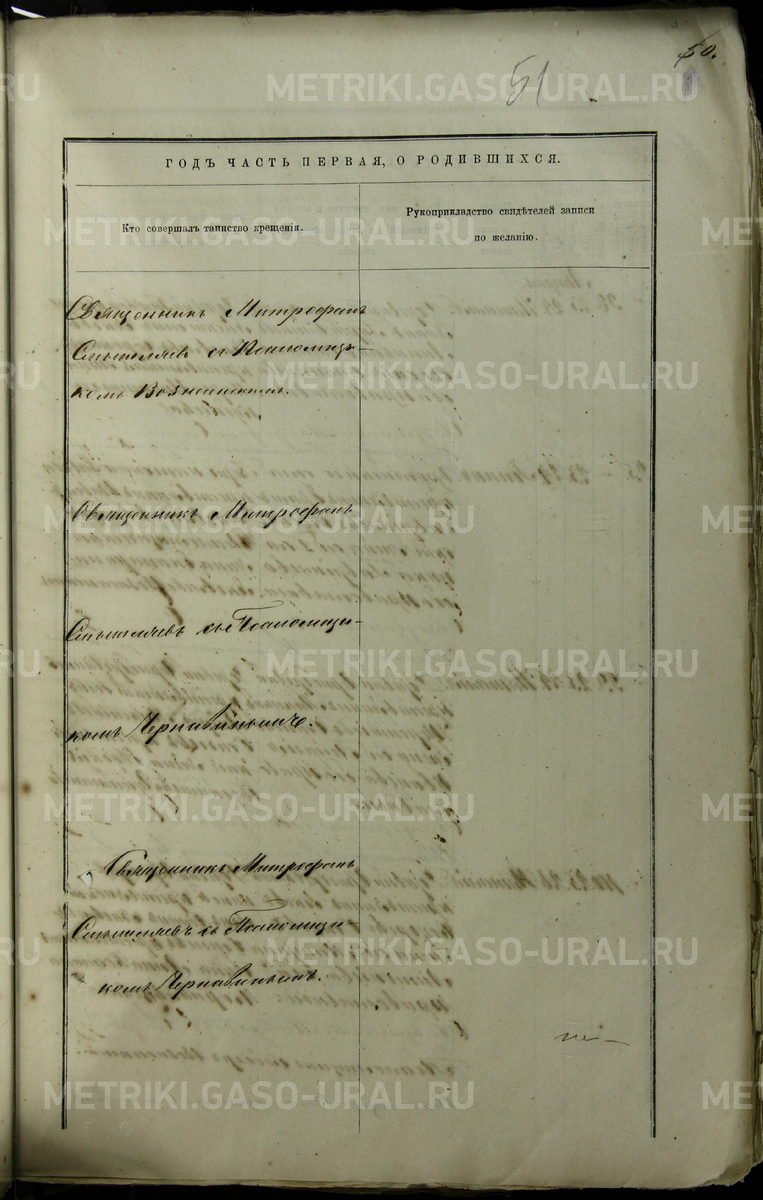 50.
51
ГОДЪ ЧАСТЬ ПЕРВАЯ, О РОДИВШИХСЯ.
Кто совершалъ таинство крещенія.
Рукоприкладство свидѣтелей записи
по желанію.
Священникъ Митрофанъ
Смышляевъ съ Псаломщи-
комъ Вознесенскимъ.
Священникъ Митрофанъ
Смышляевъ съ Псаломщи-
комъ Чернавинымъ.
Священникъ Митрофанъ
Смышляевъ съ Псаломщи-
комъ Чернавинымъ.
METRIKI.GASO-URAL.RU